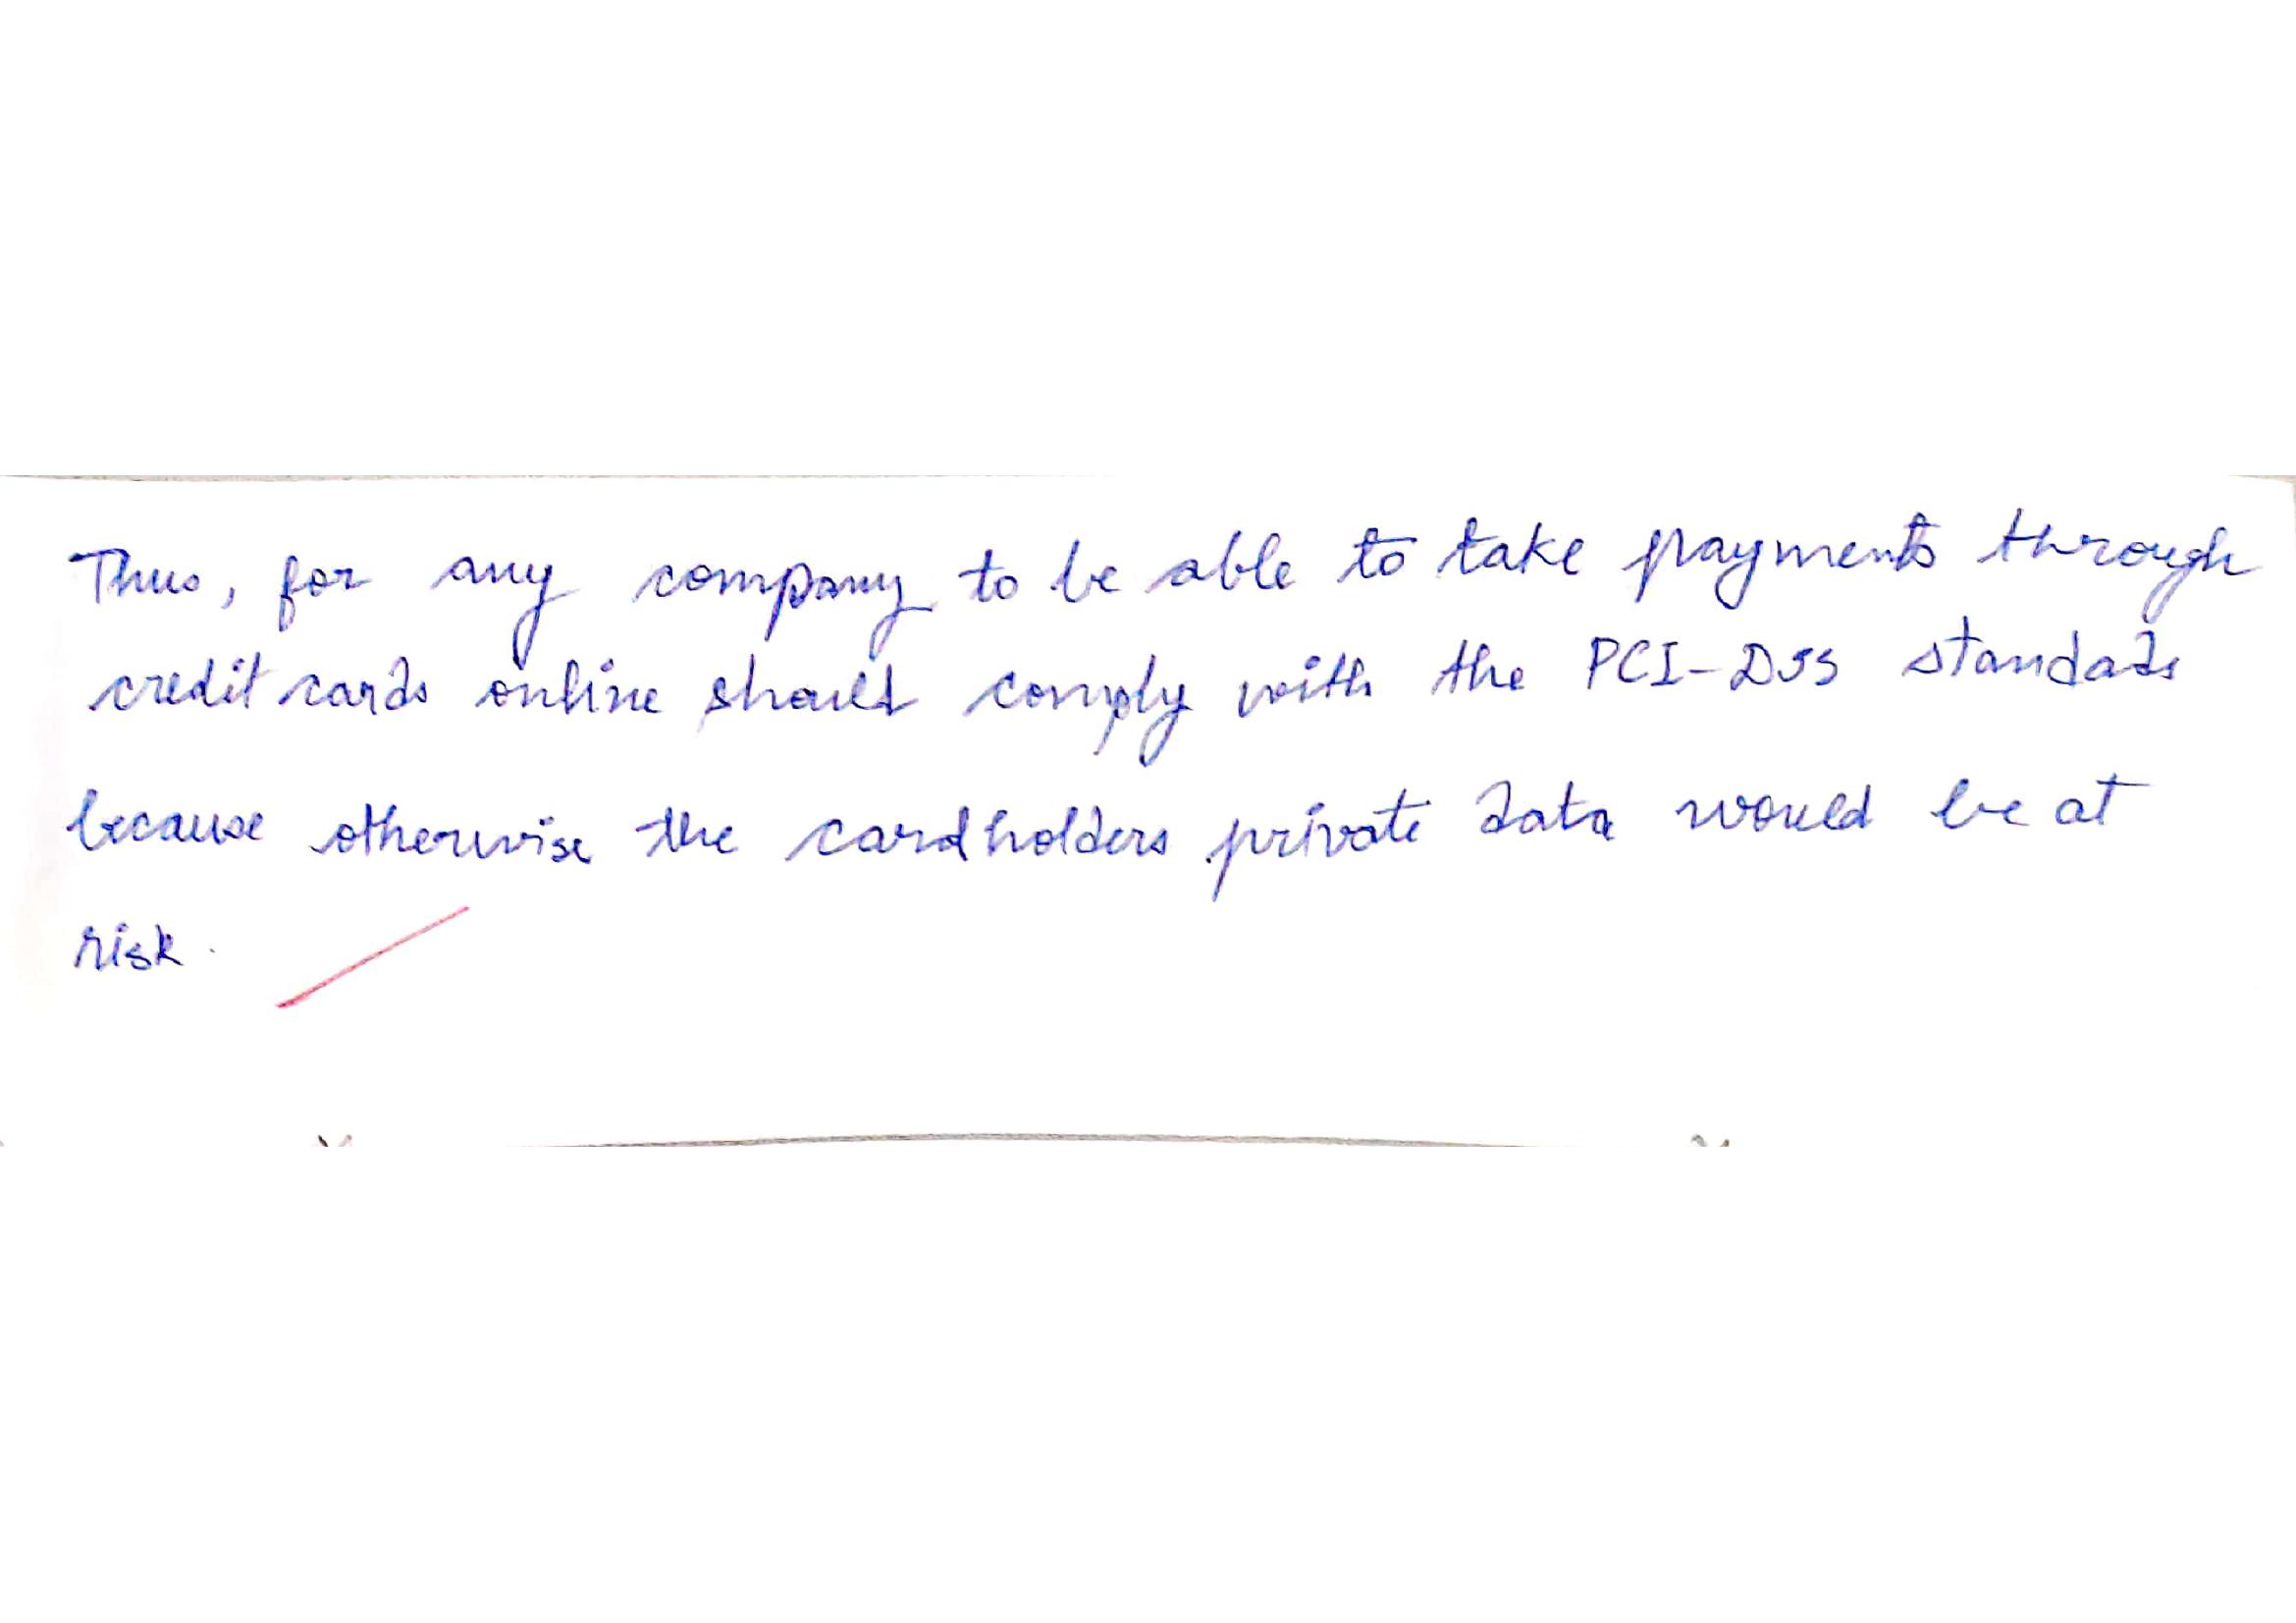 Thus, for any company to be able to take payments through
credit cards online should comply with the PCI-DSS standads
because otherwise the cardholders private data would be at
risk.